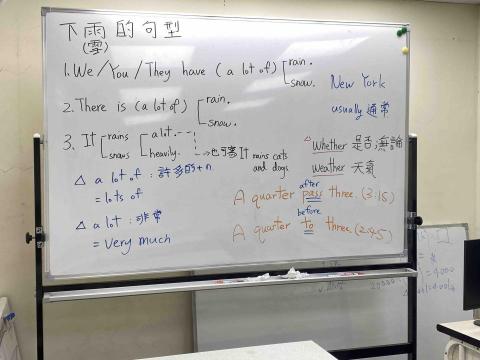 下雨的句型
(雪)
1. We / You / They have (a lot of) rain.
snow.
New York
usually 通常
2. There is (a lot of) rain.
snow.
3. It rains a lot.
snows heavily. → 也可寫 It rains cats and dogs
△ Whether 是否;無論
weather 天氣
△ a lot of : 許多的+n
= lots of
△ a lot : 非常
= very much
after
A quarter pass three. (3:15)
before
A quarter to three. (2:45)